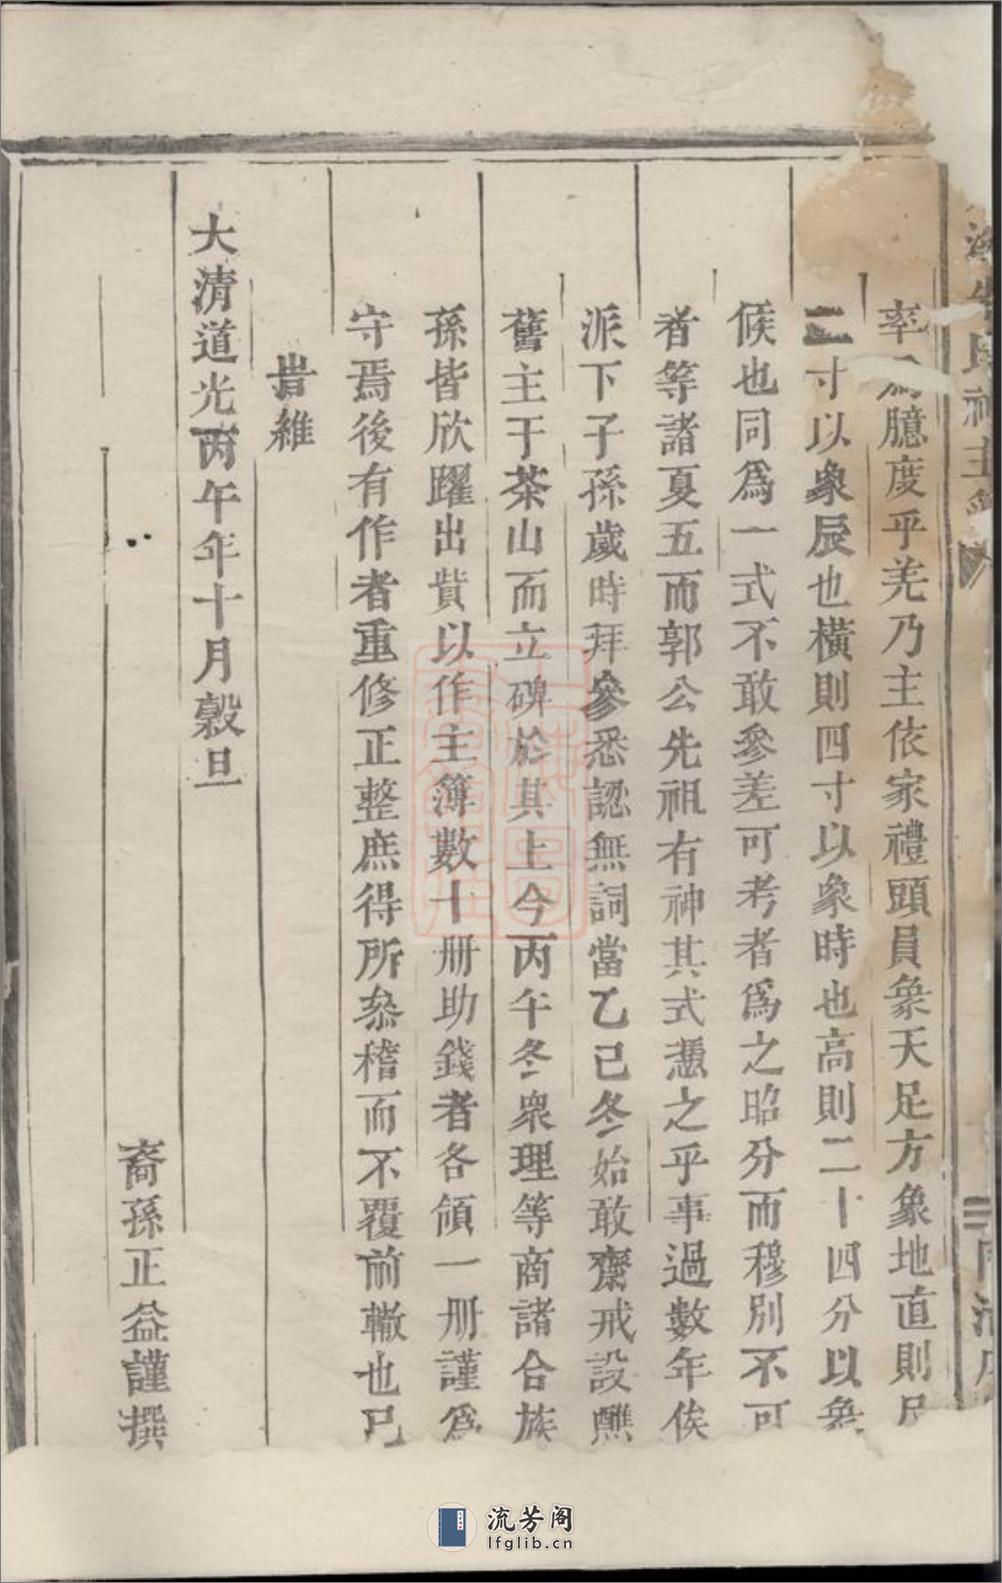 率爲臆度乎羌乃主依家禮頭員象天足方象地直則尺
二寸以象辰也橫則四寸以象時也高則二十四分以象
候也同爲一式不敢參差可考者爲之昭分而穆別不可
者等諸夏五而郭公先祖有神其式憑之乎事過數年俟
派下子孫歲時拜參悉認無詞當乙巳冬始敢齋戒設醮
舊主于茶山而立碑於其上今丙午冬衆理等商諸合族
孫皆欣躍出貲以作主簿數十册助錢者各領一册謹爲
守焉後有作者重修正整庶得所叅稽而不覆前轍也已
旹維
大清道光丙午年十月穀旦
裔孫正益謹撰
氏神主
流芳阁
lfglib.cn